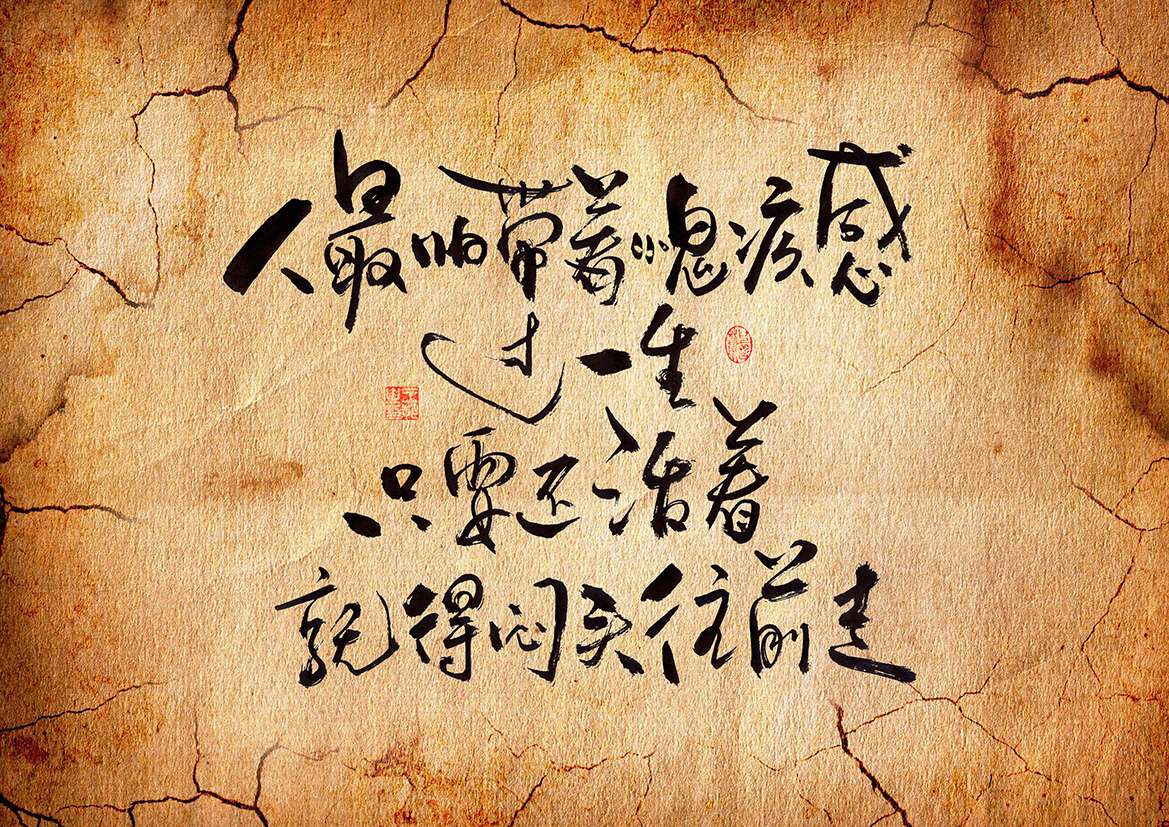 人最怕带着愧疚感
过一生
只要还活着
就得闷头往前走